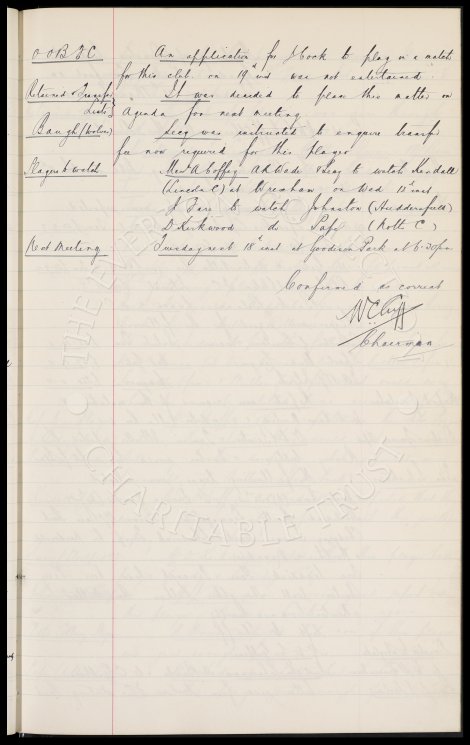 O O B F C An application for J Cock to play in a match
for this club on 19th inst was not entertained.
Retained & Transfer Lists } It was decided to place this matter on
Agenda for next meeting
Baugh (Wolves) Secy was instructed to enquire transfer
fee now required for this player
Players to watch Messrs A Coffey A R Wade & Secy to watch Kendall
(Lincoln C) at Wrexham on Wed inst
to watch Johnston (Huddersfield)
D Kirkwood do Pape (Notts C)
Next Meeting Tuesday next 18th inst at Goodison Park at 6.30pm
Confirmed as correct
W C Cuff
Chairman
THE EVERTON
CHARITABLE TRUST